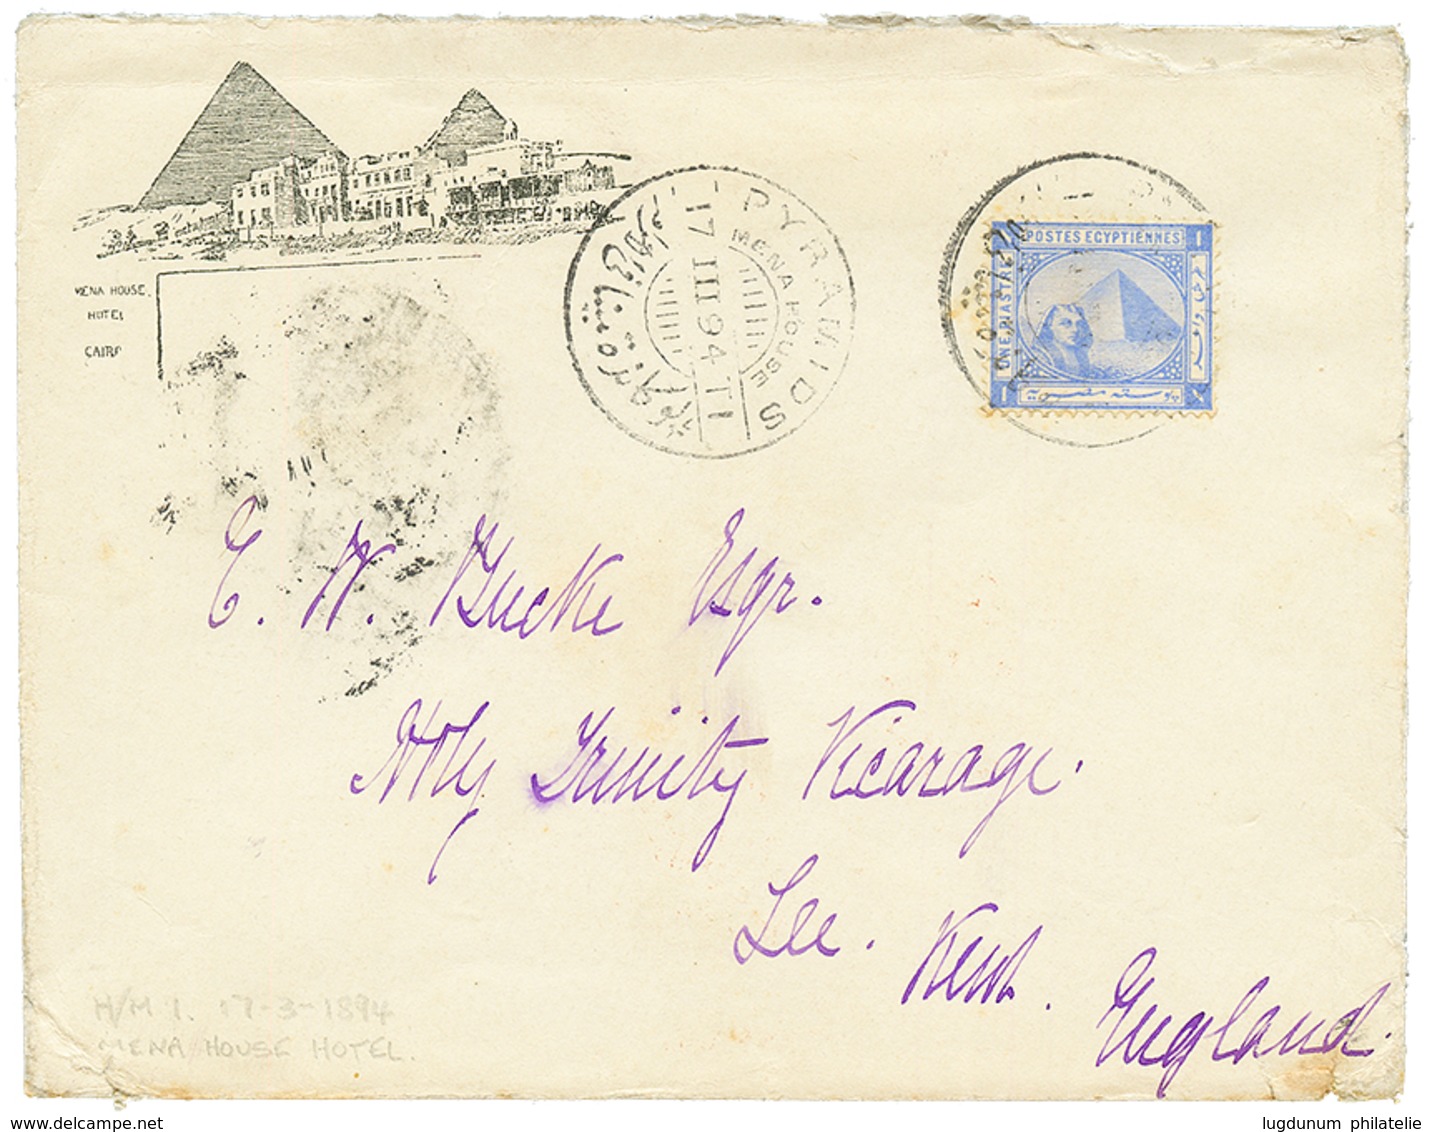 MENA HOUSE.
HOTEL
CAIRO
PYRAMIDS
MENA HOUSE
17 III 94 TI
POSTES EGYPTIENNES
ONE PIASTRE
1
1
بوسته مصريه
١
E. W. Bucke Esqr.
Holy Trinity Vicarage.
Lee.
Kent.
England.
H/M 1. 17-3-1894
MENA HOUSE HOTEL.
www.delcampe.net
lugdunum philatelie